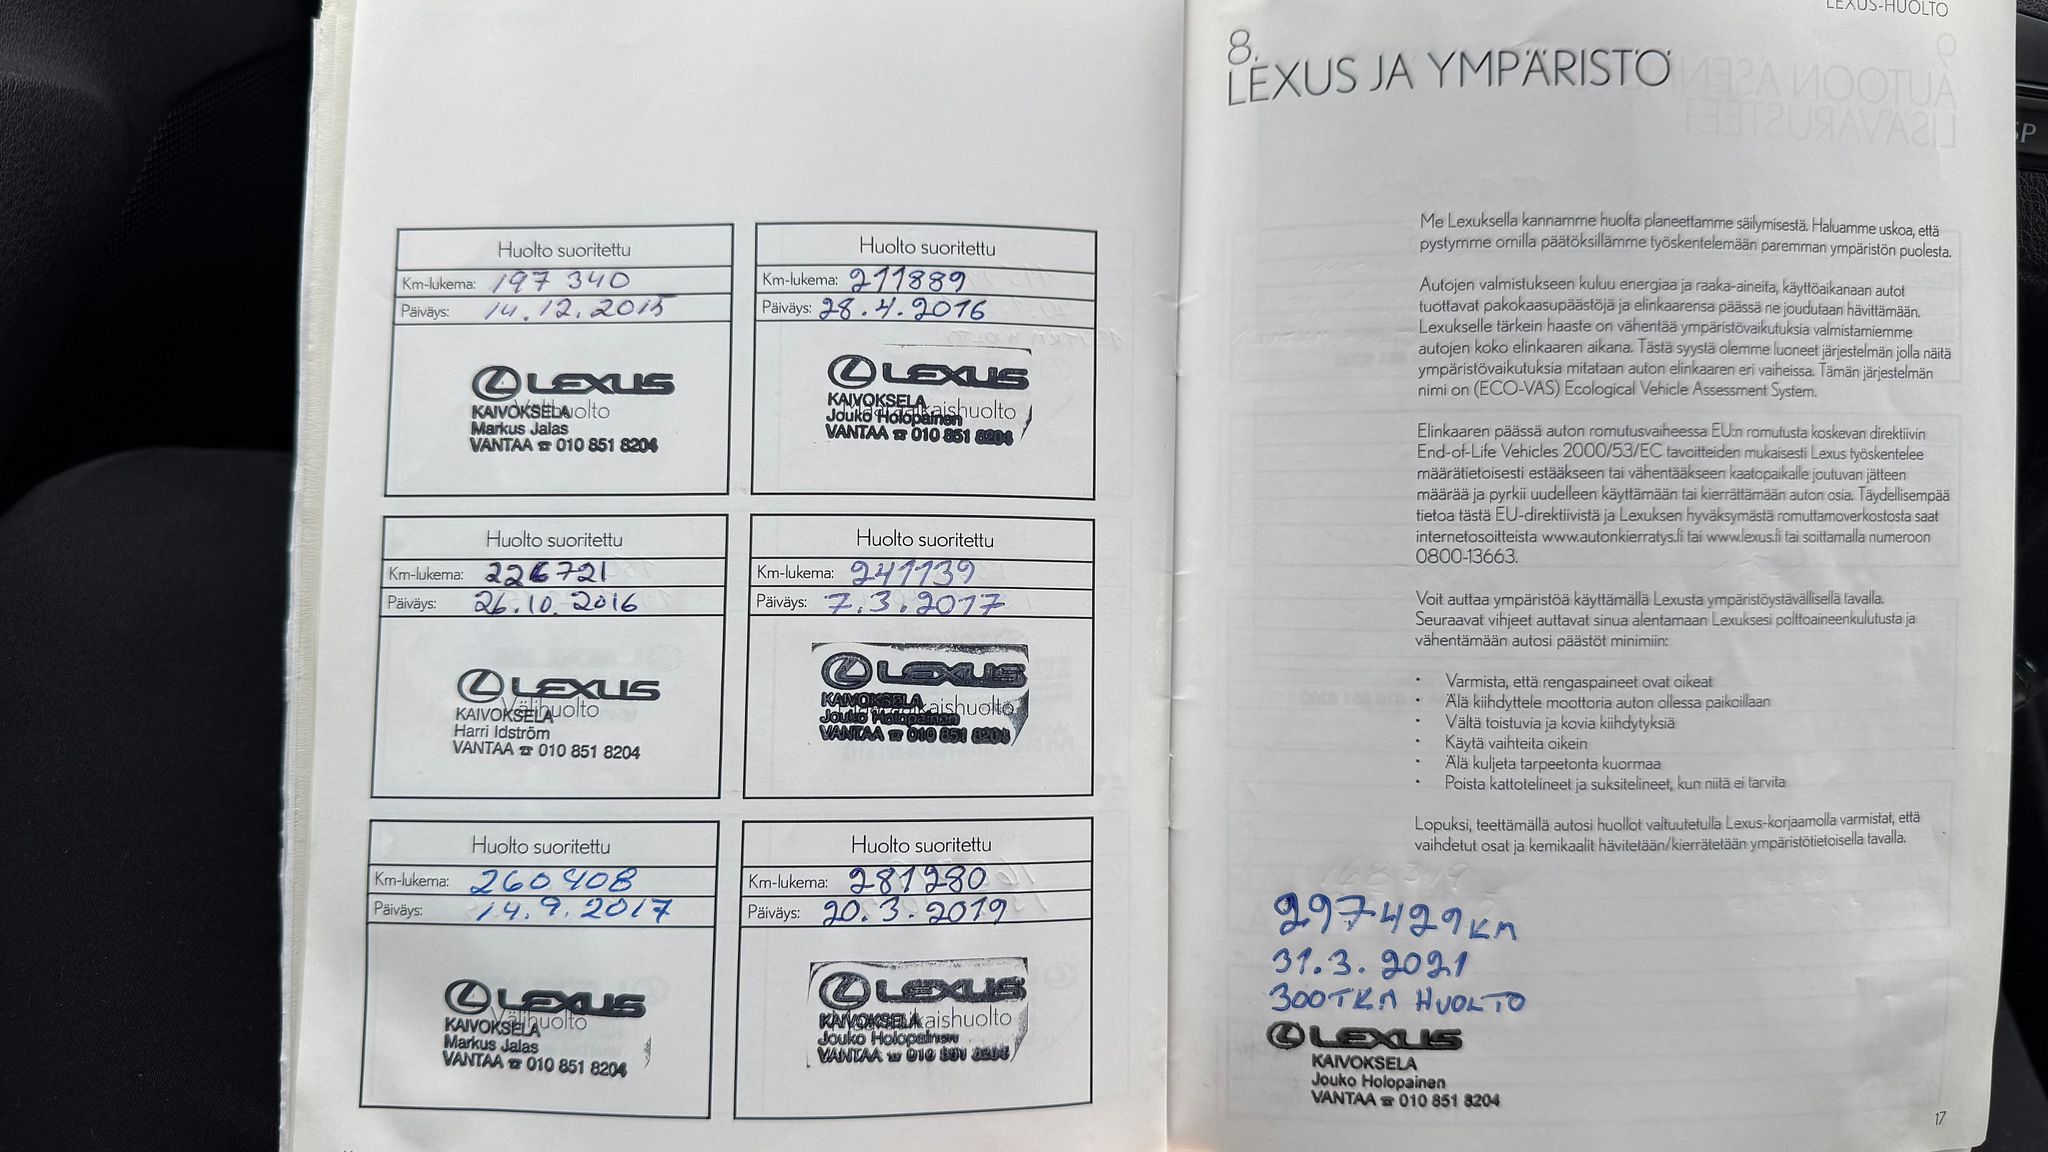 Huolto suoritettu
Km-lukema: 197 340
Päiväys: 14.12.2015
LEXUS
KAIVOKSELA Välihuolto
Markus Jalas
VANTAA ☎ 010 851 8204
Huolto suoritettu
Km-lukema: 211889
Päiväys: 28.4.2016
LEXUS
KAIVOKSELA
Jouko Holopainen
VANTAA ☎ 010 851 8204
Huolto suoritettu
Km-lukema: 226721
Päiväys: 26.10.2016
LEXUS
Välihuolto
KAIVOKSELA
Harri Idström
VANTAA ☎ 010 851 8204
Huolto suoritettu
Km-lukema: 241139
Päiväys: 7.3.2017
LEXUS
KAIVOKSELA
Jouko Holopainen
VANTAA ☎ 010 851 8204
Huolto suoritettu
Km-lukema: 260408
Päiväys: 14.9.2017
LEXUS
Välihuolto
KAIVOKSELA
Markus Jalas
VANTAA ☎ 010 851 8204
Huolto suoritettu
Km-lukema: 281280
Päiväys: 20.3.2019
LEXUS
KAIVOKSELA
Jouko Holopainen
VANTAA ☎ 010 851 8204
LEXUS-HUOLTO
8.
LEXUS JA YMPÄRISTÖ
Me Lexuksella kannamme huolta planeettamme säilymisestä. Haluamme uskoa, että
pystymme omilla päätöksillämme työskentelemään paremman ympäristön puolesta.
Autojen valmistukseen kuluu energiaa ja raaka-aineita, käyttöaikanaan autot
tuottavat pakokaasupäästöjä ja elinkaarensa päässä ne joudutaan hävittämään.
Lexukselle tärkein haaste on vähentää ympäristövaikutuksia valmistamiemme
autojen koko elinkaaren aikana. Tästä syystä olemme luoneet järjestelmän jolla näitä
ympäristövaikutuksia mitataan auton elinkaaren eri vaiheissa. Tämän järjestelmän
nimi on (ECO-VAS) Ecological Vehicle Assessment System.
Elinkaaren päässä auton romutusvaiheessa EU:n romutusta koskevan direktiivin
End-of-Life Vehicles 2000/53/EC tavoitteiden mukaisesti Lexus työskentelee
määrätietoisesti estääkseen tai vähentääkseen kaatopaikalle joutuvan jätteen
määrää ja pyrkii uudelleen käyttämään tai kierrättämään auton osia. Täydellisempää
tietoa tästä EU-direktiivistä ja Lexuksen hyväksymästä romuttamoverkostosta saat
internetosoitteista www.autonkierratys.fi tai www.lexus.fi tai soittamalla numeroon
0800-13663.
Voit auttaa ympäristöä käyttämällä Lexusta ympäristöystävällisellä tavalla.
Seuraavat vihjeet auttavat sinua alentamaan Lexuksesi polttoaineenkulutusta ja
vähentämään autosi päästöt minimiin:
• Varmista, että rengaspaineet ovat oikeat
• Älä kiihdyttele moottoria auton ollessa paikoillaan
• Vältä toistuvia ja kovia kiihdytyksiä
• Käytä vaihteita oikein
• Älä kuljeta tarpeetonta kuormaa
• Poista kattotelineet ja suksitelineet, kun niitä ei tarvita
Lopuksi, teettämällä autosi huollot valtuutetulla Lexus-korjaamolla varmistat, että
vaihdetut osat ja kemikaalit hävitetään/kierrätetään ympäristötietoisella tavalla.
297429 KM
31.3.2021
300TKM HUOLTO
LEXUS
KAIVOKSELA
Jouko Holopainen
VANTAA ☎ 010 851 8204
17